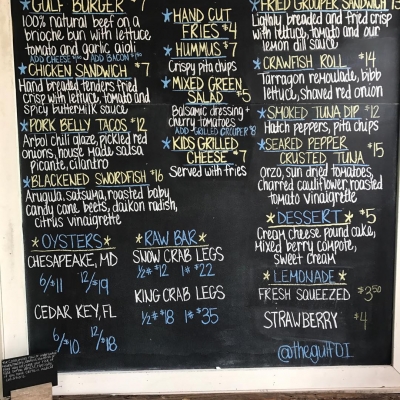 GULF BURGER $7
100% natural beef on a
brioche bun with lettuce,
tomato and garlic aioli
ADD CHEESE ADD BACON
CHICKEN SANDWICH $7
Hand breaded tenders fried
crisp with lettuce, tomato and
spicy buttermilk sauce
PORK BELLY TACOS $12
Arbol chili glaze, pickled red
onions, house made salsa
picante, cilantro
BLACKENED SWORDFISH $16
Arugula, satsuma, roasted baby
candy cane beets, daikon radish,
citrus vinaigrette
*OYSTERS*
CHESAPEAKE, MD
6/$11 12/$19
CEDAR KEY, FL
6/$10 12/$18
HAND CUT
FRIES $4
HUMMUS $7
Crispy pita chips
MIXED GREEN
SALAD $5
Balsamic dressing +
cherry tomatoes
ADD GRILLED GROUPER $8
KIDS GRILLED
CHEESE $7
Served with fries
*RAW BAR*
SNOW CRAB LEGS
1/2# $12 1# $22
KING CRAB LEGS
1/2# $18 1# $35
FRIED GROUPER SANDWICH $13
Lightly breaded and fried crisp
with lettuce, tomato and our
lemon dill sauce
CRAWFISH ROLL $14
Tarragon remoulade, bibb
lettuce, shaved red onion
SMOKED TUNA DIP $12
Hatch peppers, pita chips
SEARED PEPPER
CRUSTED TUNA $15
Orzo, sun dried tomatoes,
charred cauliflower, roasted
tomato vinaigrette
*DESSERT* $5
Cream cheese pound cake,
mixed berry compote,
sweet cream
*LEMONADE*
FRESH SQUEEZED $3.50
STRAWBERRY $4
@thegulfOI